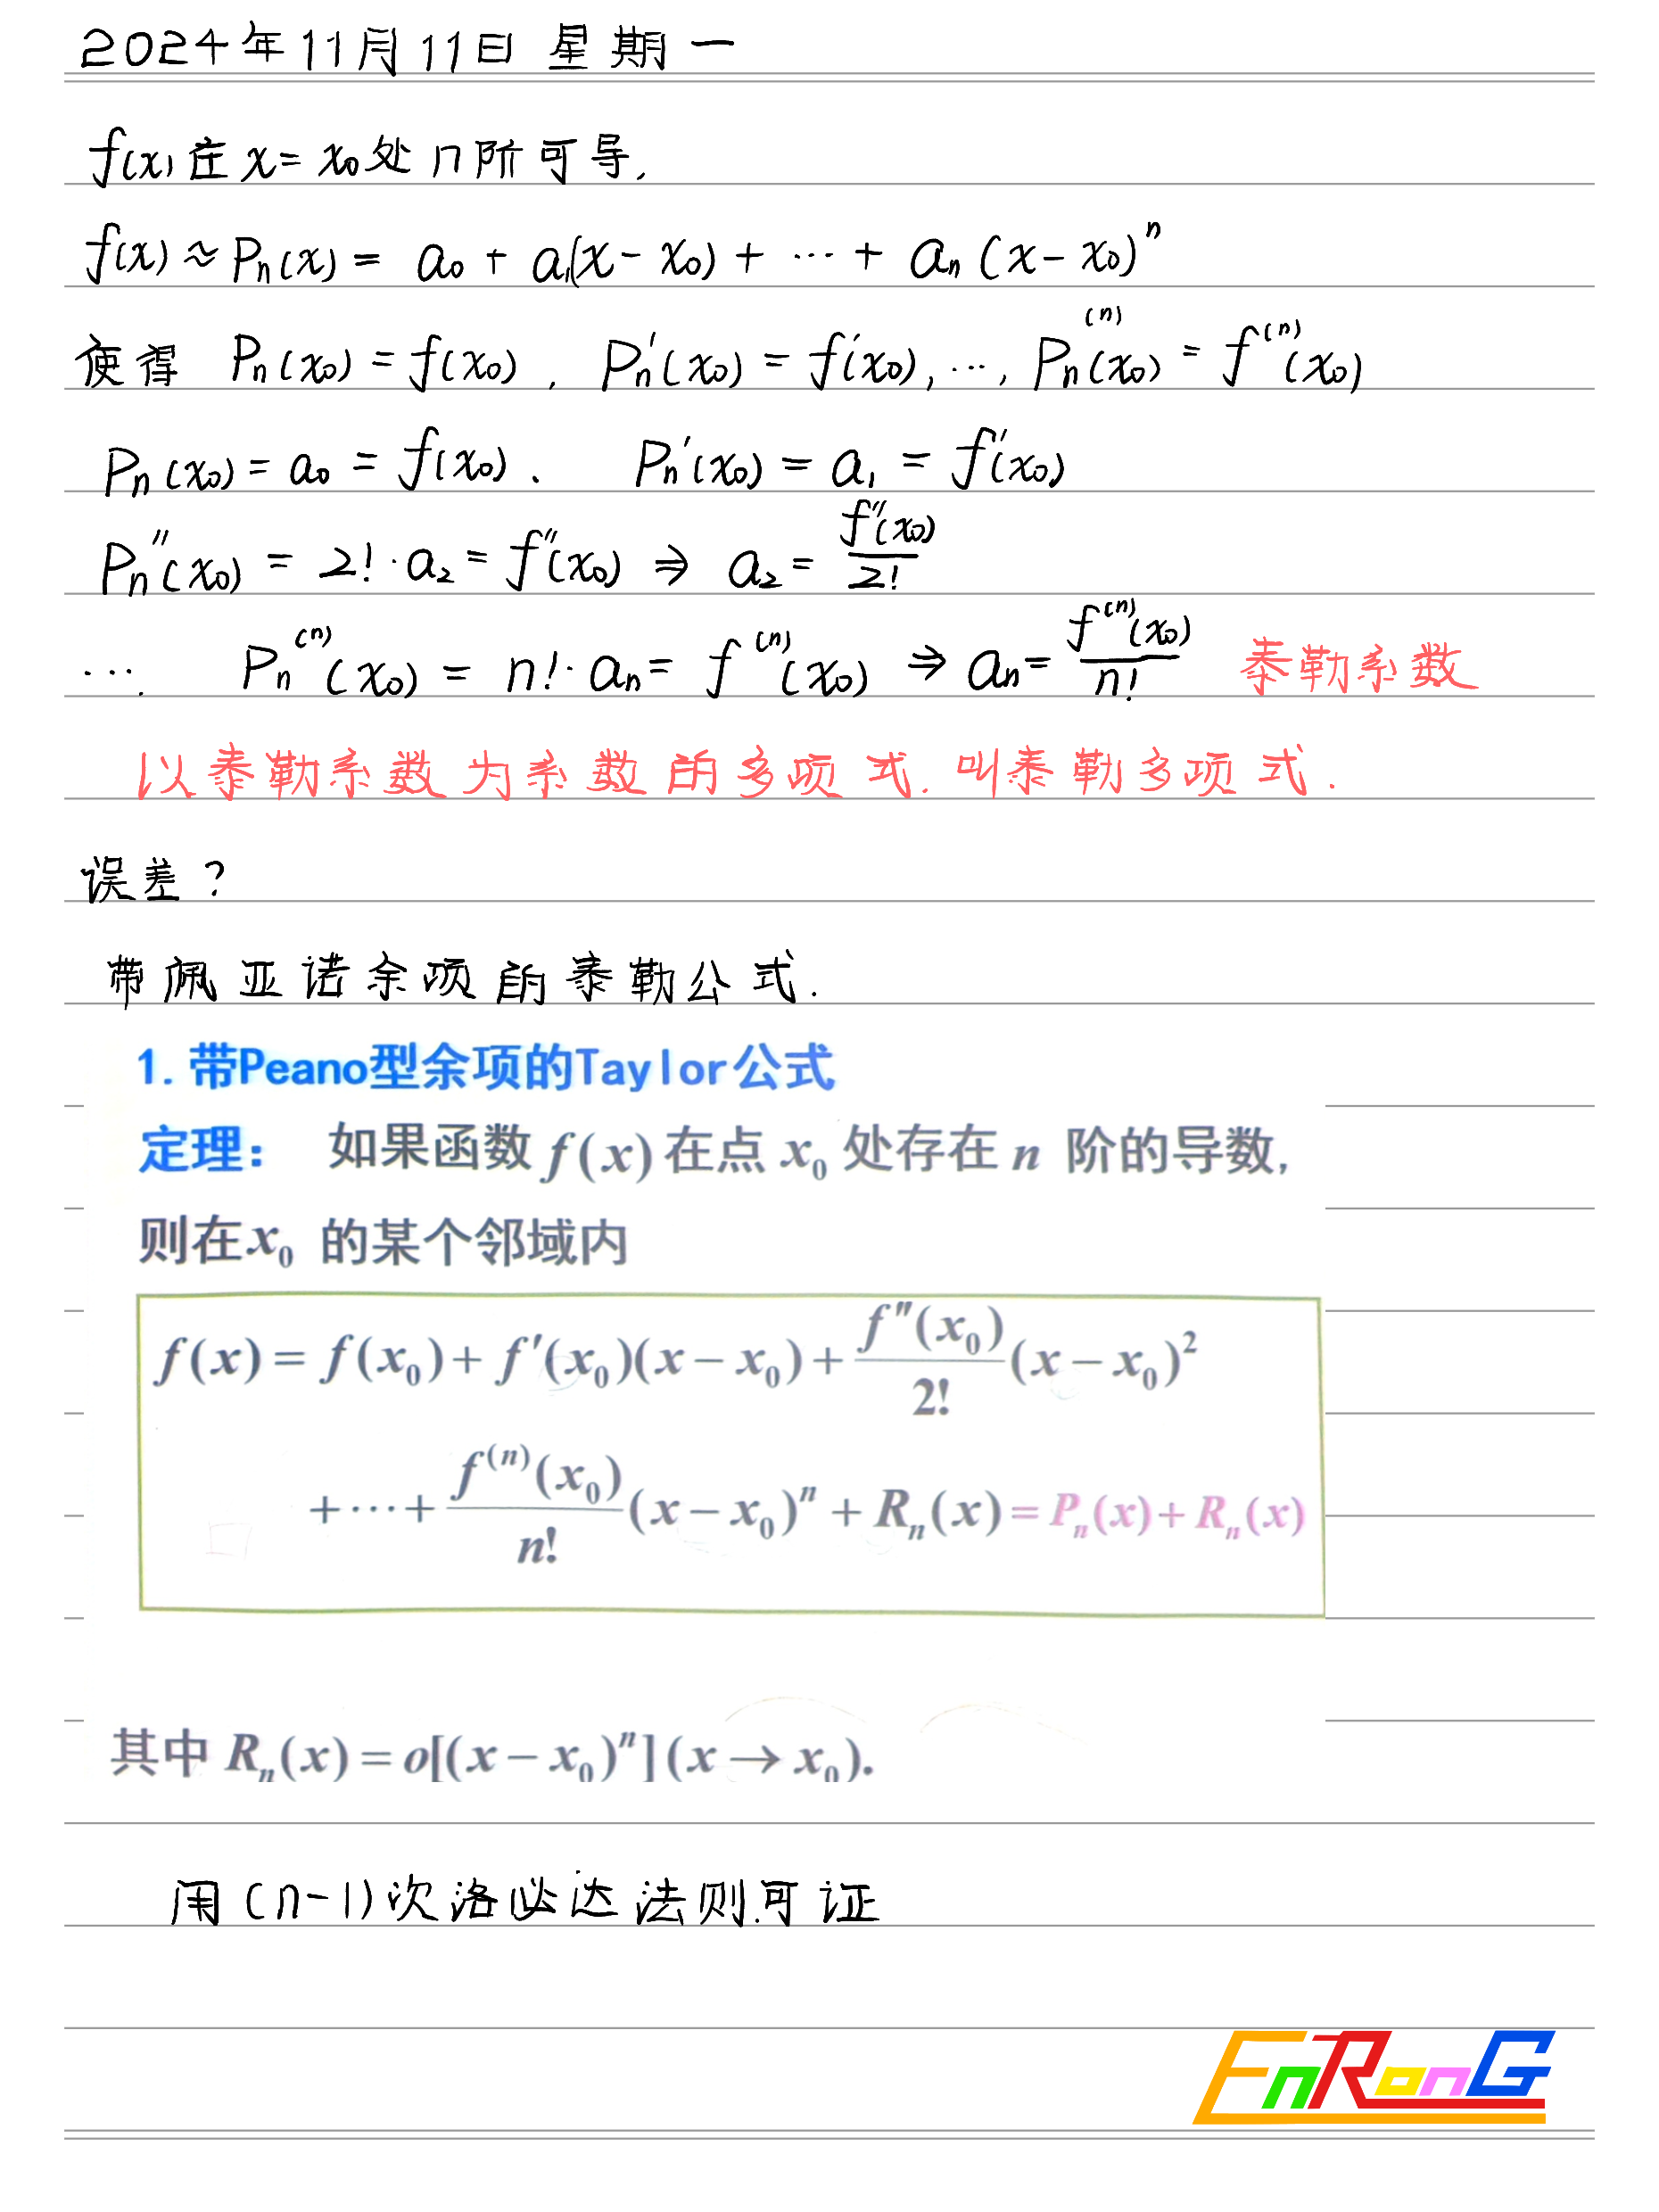 2024年11月11日 星期一
f(x)在x=x₀处n阶可导.
f(x)≈Pₙ(x)= a₀ + a₁(x-x₀) + ⋯ + aₙ(x-x₀)ⁿ
使得 Pₙ(x₀)=f(x₀), Pₙ'(x₀)=f'(x₀), ⋯, Pₙ⁽ⁿ⁾(x₀)=f⁽ⁿ⁾(x₀)
Pₙ(x₀)=a₀=f(x₀). Pₙ'(x₀)=a₁=f'(x₀)
Pₙ''(x₀)=2!·a₂=f''(x₀) ⇒ a₂=f''(x₀)/2!
⋯. Pₙ⁽ⁿ⁾(x₀)=n!·aₙ=f⁽ⁿ⁾(x₀) ⇒ aₙ=f⁽ⁿ⁾(x₀)/n! 泰勒系数
以泰勒系数为系数的多项式.叫泰勒多项式.
误差?
带佩亚诺余项的泰勒公式.
1.带Peano型余项的Taylor公式
定理: 如果函数f(x)在点x₀处存在n阶的导数,
则在x₀的某个邻域内
f(x)=f(x₀)+f'(x₀)(x-x₀)+f''(x₀)/2!(x-x₀)²
+⋯+f⁽ⁿ⁾(x₀)/n!(x-x₀)ⁿ+Rₙ(x)=Pₙ(x)+Rₙ(x)
其中Rₙ(x)=o[(x-x₀)ⁿ](x→x₀).
用(n-1)次洛必达法则可证
EnRonG